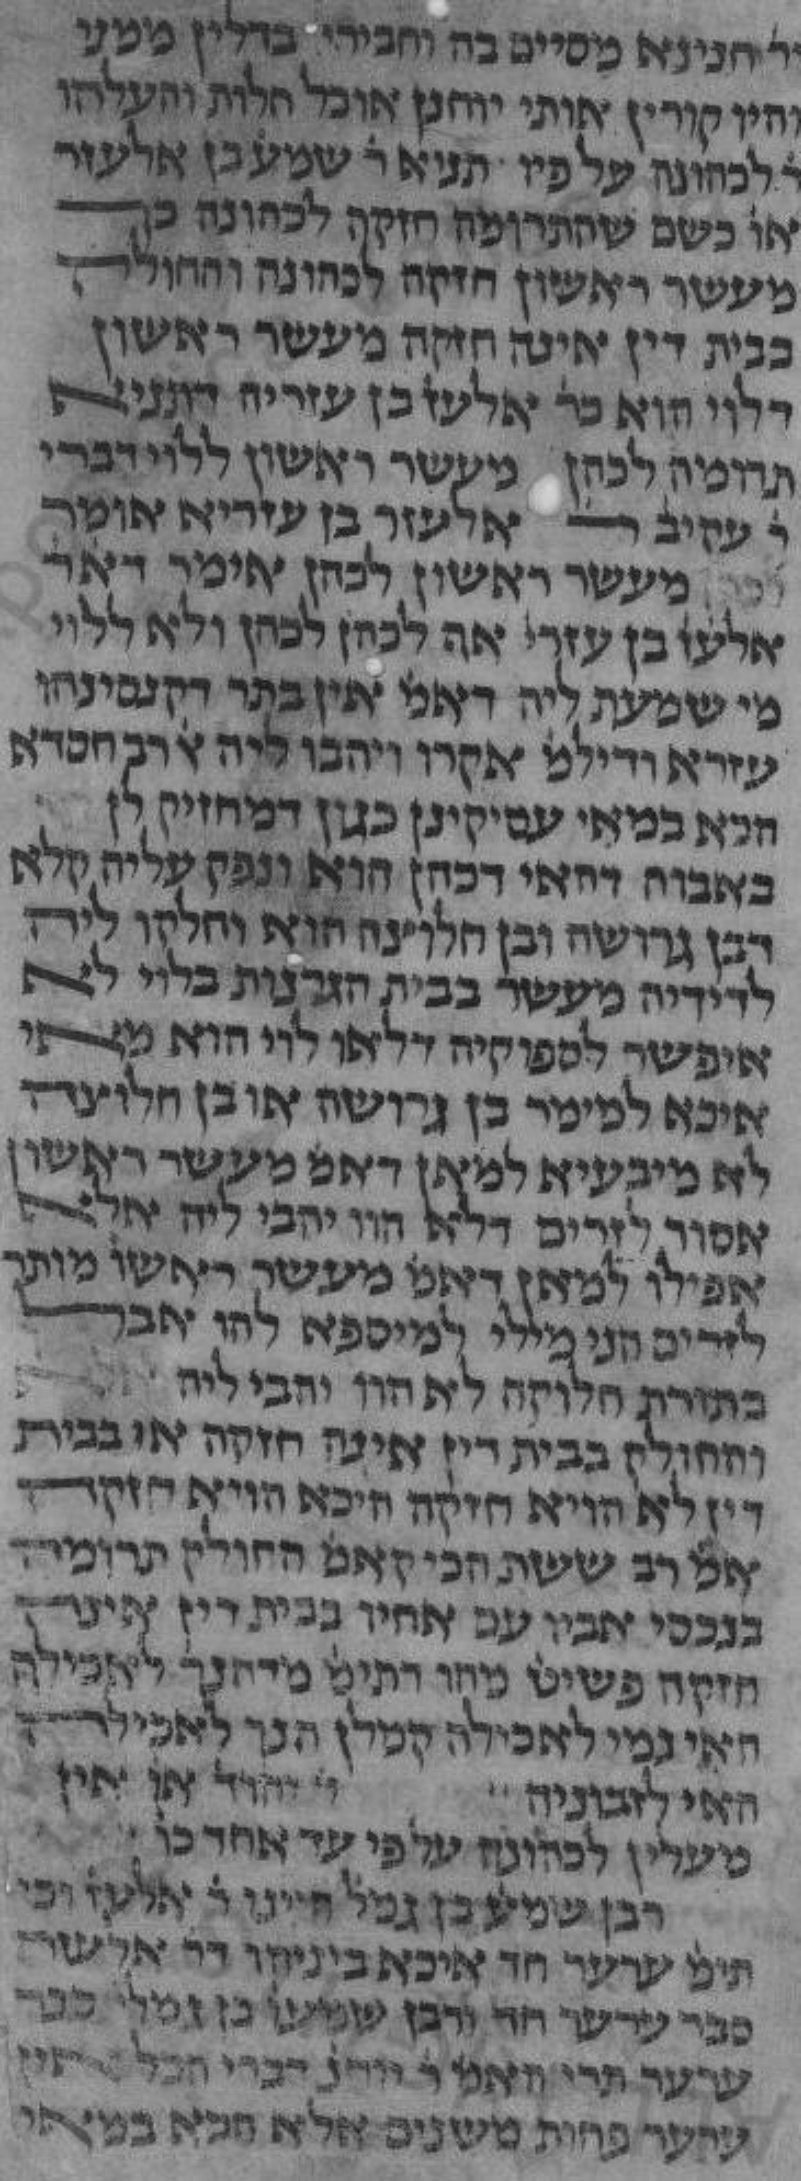 ר חנינא מסיים בה וחבירי בדלין ממני
והיו קורין אותי יוחנן אוכל חלות והעלהו
ר לכהונה על פיו תניא ר שמע בן אלעזר
או כשם שהתרומה חזקה לכהונה כך
מעשר ראשון חזקה לכהונה והחולק
בבית דין אינה חזקה מעשר ראשון
דלוי הוא כר אלעז בן עזריה דתניא
תרומה לכהן מעשר ראשון ללוי דברי
ר עקיב ר אלעזר בן עזריא אומר
מעשר ראשון לכהן אימר דאר
אלעז בן עזרי אף לכהן לכהן ולא ללוי
מי שמעת ליה דאמ אין בתר דקנסינהו
עזרא ודילמ אקרו ויהבו ליה א רב חסדא
הכא במאי עסיקינן כגון דמחזיק לן
באבוה דהאי דכהן הוא ונפק עליה קלא
דבן גרושה ובן חלוצה הוא וחלקו ליה
לדידיה מעשר בבית הגרנות בלוי לא
איפשר לספוקיה דלאו לוי הוא מאי
איכא למימר בן גרושה או בן חלוצה
לא מיבעיא למאן דאמ מעשר ראשון
אסור לזרים דלא הוו יהבי ליה אלא
אפילו למאן דאמ מעשר ראשו מותר
לזרים הני מילי למיספא להו אבל
בתורת חלוקה לא הוו יהבי ליה
והחולק בבית דין אינה חזקה או בבית
דין לא הויא חזקה היכא הויא חזקה
אמ רב ששת הכי קאמ החולק תרומה
בנכסי אביו עם אחיו בבית דין אינה
חזקה פשיט מהו דתימ מדהנך לאכילה
האי נמי לאכילה קמלן הנך לאכילה
האי לזבוניה ר יהוד או אין
מעלין לכהונה על פי עד אחד כו
רבן שמע בן גמל היינו ר אלעז וכי
תימ ערער חד איכא ביניהו דר אלעזר
סבר ערער חד ורבן שמעו בן גמלי סבר
ערער תרי האמ ר יוחנ דברי הכל אין
ערער פחות משנים אלא הכא במאי